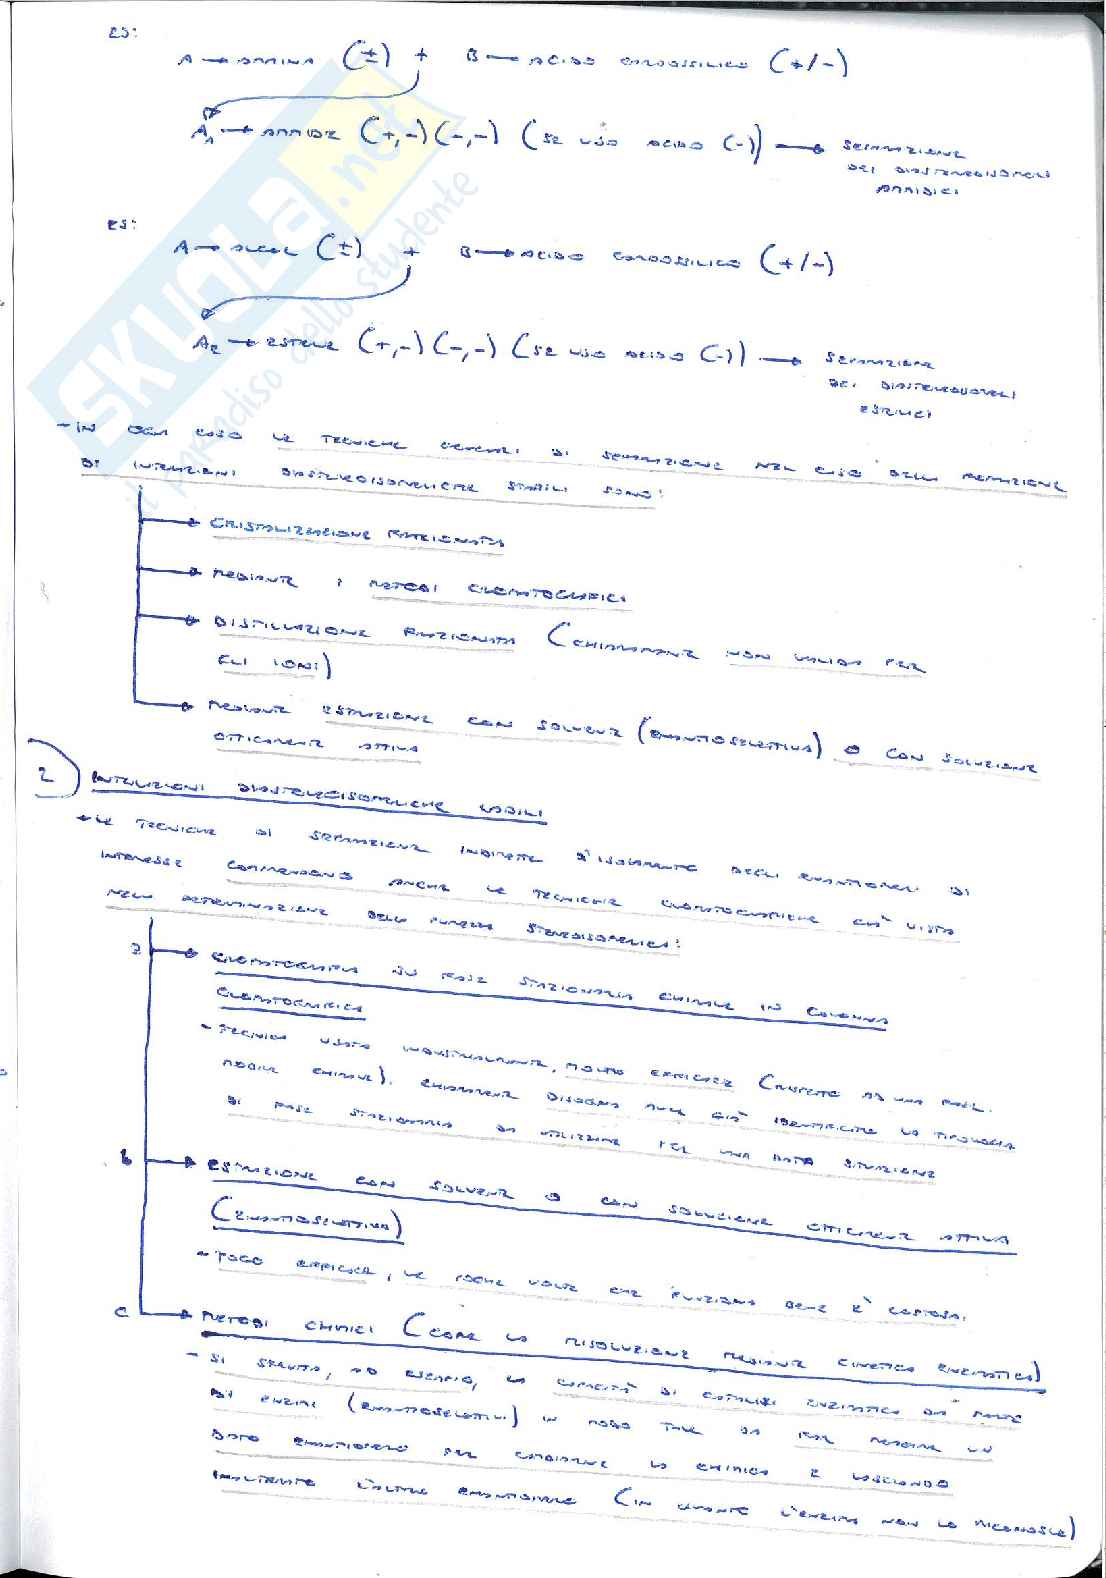 ES:
A → AMMINA (±) + B → ACIDO CARBOSSILICO (+/-)
A1 → AMMIDE (+,-)(-,-) (SE USO ACIDO (-)) → SEPARAZIONE
DEI DIASTEREOISOMERI
AMMIDICI
ES:
A → ALCOL (±) + B → ACIDO CARBOSSILICO (+/-)
A2 → ESTERE (+,-)(-,-) (SE USO ACIDO (-)) → SEPARAZIONE
DEI DIASTEREOISOMERI
ESTERICI
- IN OGNI CASO LE TECNICHE GENERALI DI SEPARAZIONE NEL CASO DELLA FORMAZIONE
DI INTERAZIONI DIASTEREOISOMERICHE STABILI SONO:
CRISTALIZZAZIONE FRAZIONATA
MEDIANTE I METODI CROMATOGRAFICI
DISTILLAZIONE FRAZIONATA (CHIARAMENTE NON VALIDA PER
GLI IONI)
MEDIANTE ESTRAZIONE CON SOLVENTE (ENANTIOSELETTIVA) O CON SOLUZIONE
OTTICAMENTE ATTIVA
2) INTERAZIONI DIASTEREOISOMERICHE LABILI
LE TECNICHE DI SEPARAZIONE INDIRETTE D'ISOLAMENTO DEGLI ENANTIOMERI DI
INTERESSE COMPRENDONO ANCHE LE TECNICHE CROMATOGRAFICHE GIÀ VISTE
NELLA DETERMINAZIONE DELLA PUREZZA STEREOISOMERICA:
a CROMATOGRAFIA SU FASE STAZIONARIA CHIRALE IN COLONNA
CROMATOGRAFICA
- TECNICA USATA INDUSTRIALMENTE, MOLTO EFFICACE (RISPETTO AD UNA FASE
MOBILE CHIRALE). CHIARAMENTE BISOGNA AVER GIÀ IDENTIFICATO LA TIPOLOGIA
DI FASE STAZIONARIA DA UTILIZZARE PER UNA DATA SITUAZIONE
b ESTRAZIONE CON SOLVENTE O CON SOLUZIONE OTTICAMENTE ATTIVA
(ENANTIOSELETTIVA)
- POCO EFFICACE, LE POCHE VOLTE CHE FUNZIONA BENE E' COSTOSA.
c METODI CHIMICI (COME LA RISOLUZIONE MEDIANTE CINETICA ENZIMATICA)
- SI SFRUTTA, AD ESEMPIO, LA CAPACITÀ DI CATALISI ENZIMATICA DA PARTE
DI ENZIMI (ENANTIOSELETTIVI) IN MODO TALE DA FAR REAGIRE UN
DATO ENANTIOMERO PER CAMBIARNE LA CHIMICA E LASCIANDO
INALTERATO L'ALTRO ENANTIOMERO (IN QUANTO L'ENZIMA NON LO RICONOSCE)
SKUOLA.net
il paradiso dello studente